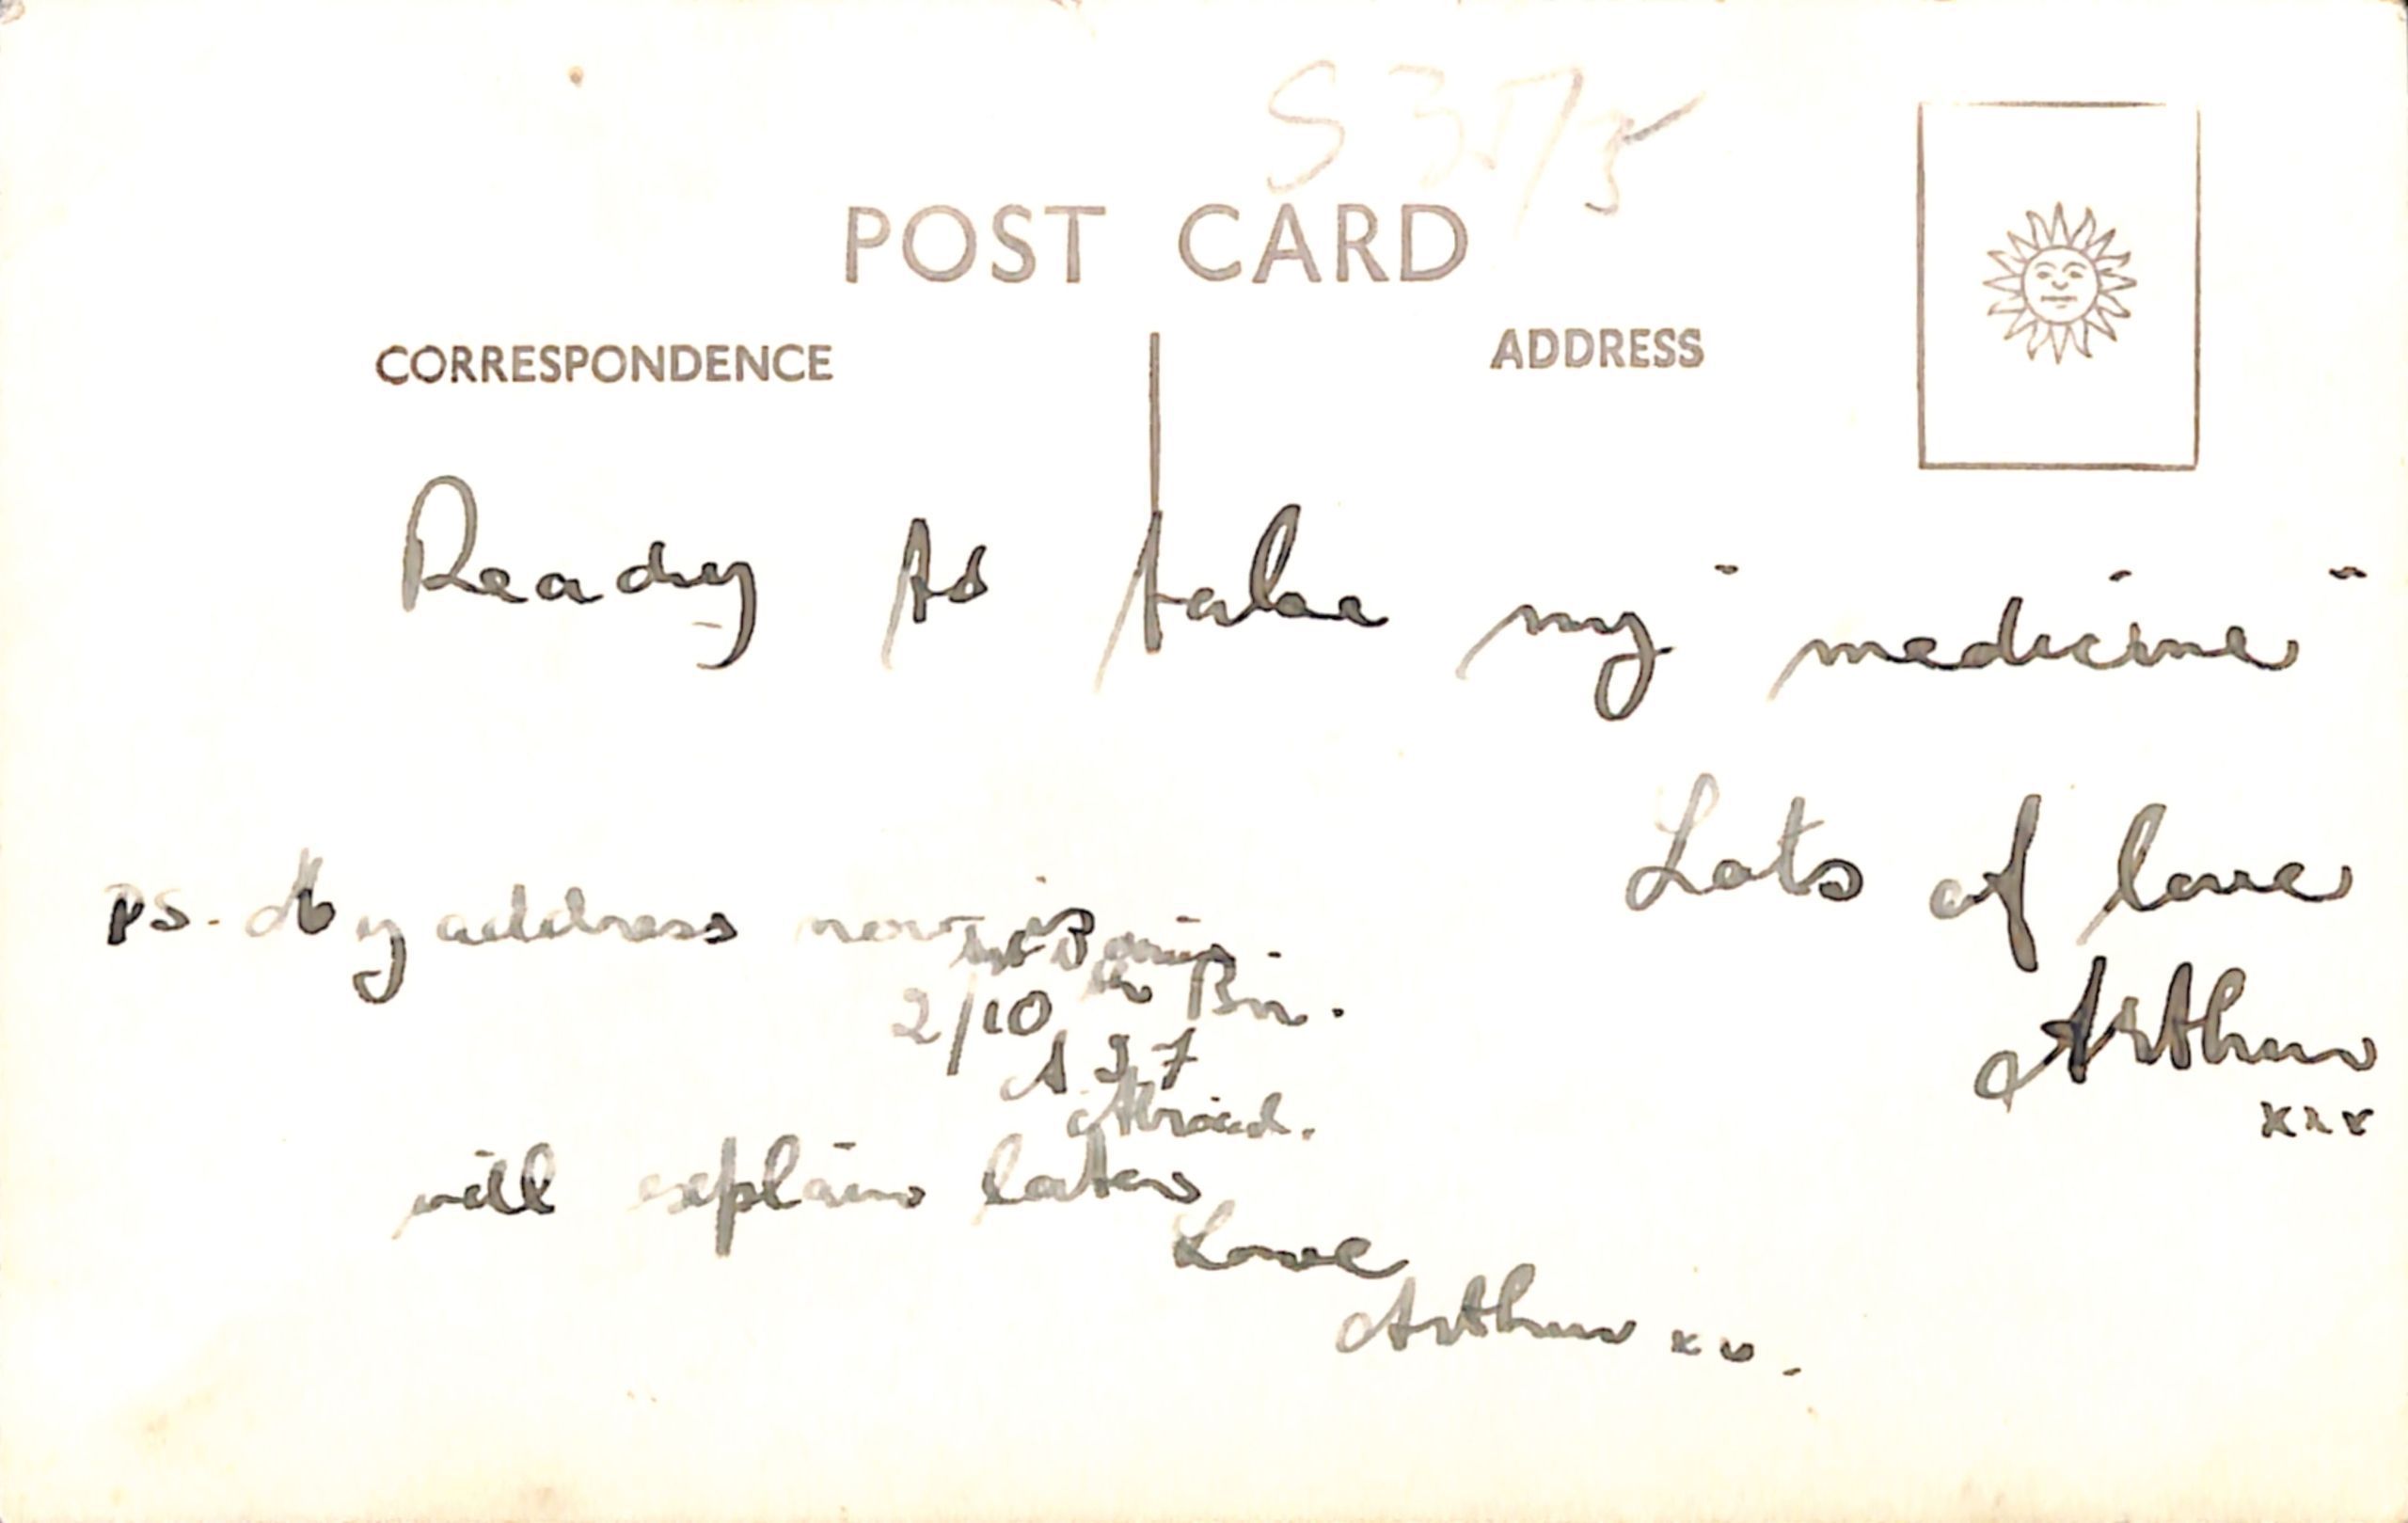 POST CARD
CORRESPONDENCE
ADDRESS
Ready to take my "medicine"
Lots of love
Arthur
xxx
PS. My address now
2/10 Bn.
AIF
Abroad.
will explain later
Love
Arthur xx.